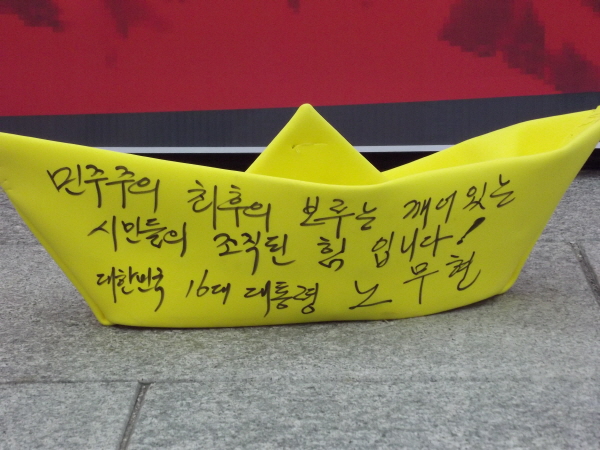 민주주의 최후의 보루는 깨어있는
시민들의 조직된 힘 입니다!
대한민국 16대 대통령 노무현